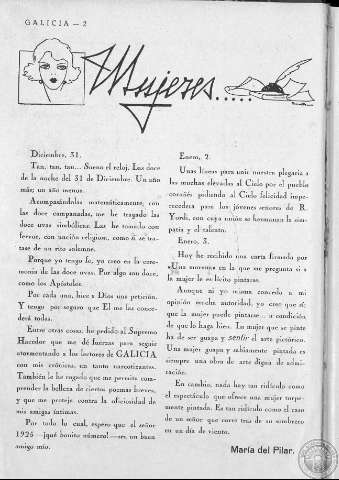 GALICIA — 2
Mujeres.....
Diciembre, 31.
Tan, tan, tan... Suena el reloj. Las doce
de la noche del 31 de Diciembre. Un año
más; un año menos.
Acompasándolas matemáticamente, con
las doce campanadas, me he tragado las
doce uvas simbólicas. Las he tomado con
fervor, con unción religiosa, como si se tra-
tase de un rito solemne.
Porque yo tengo fe, yo creo en la cere-
monia de las doce uvas. Por algo son doce,
como los Apóstoles.
Por cada una, hice a Dios una petición.
Y tengo por seguro que El me las conce-
derá todas.
Entre otras cosas, he pedido al Supremo
Hacedor que me dé fuerzas para seguir
atormentando a los lectores de GALICIA
con mis crónicas, un tanto narcotizantes.
También le he rogado que me permita com-
prender la belleza de ciertos poemas breves,
y que me proteja contra la oficiosidad de
mis amigas íntimas.
Por todo lo cual, espero que el señor
1925 —¡qué bonito número!— sea un buen
amigo mío.
Enero, 2.
Unas líneas para unir nuestra plegaria a
las muchas elevadas al Cielo por el pueblo
coruñés pidiendo al Cielo felicidad impe-
recedera para los jóvenes señores de R.
Yordi, con cuya unión se hermanan la sim-
patía y el talento.
Enero, 3.
Hoy he recibido una carta firmada por
«Una morena» en la que me pregunta si a
la mujer le es lícito pintarse.
Aunque ni yo misma concedo a mi
opinión mucha autoridad, yo creo que sí;
que la mujer puede pintarse... a condición
de que lo haga bien. La mujer que se pinte
ha de ser guapa y sentir el arte pictórico.
Una mujer guapa y sabiamente pintada es
siempre una obra de arte digna de admi-
ración.
En cambio, nada hay tan ridículo como
el espectáculo que ofrece una mujer torpe-
mente pintada. Es tan ridículo como el caso
de un señor que corre tras de su sombrero
en un día de viento.
María del Pilar.